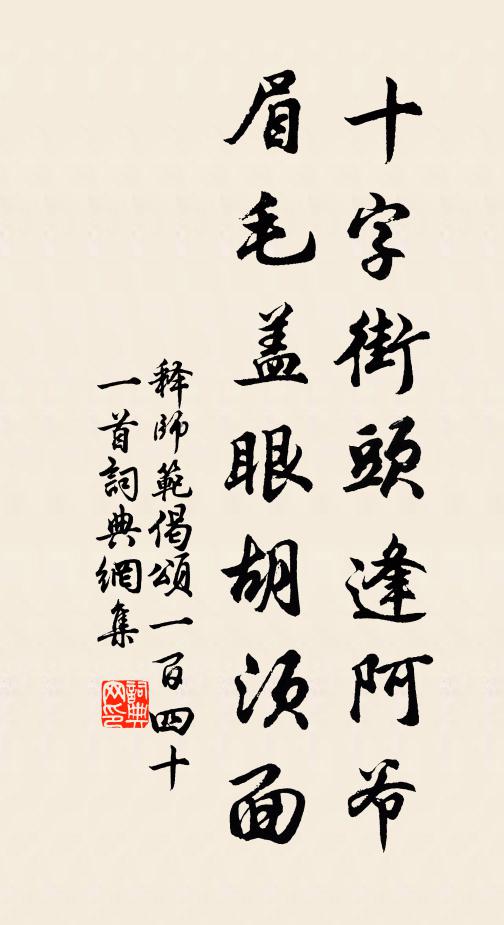 十字街頭逢阿爷
眉毛盖眼胡须面
释師範偈頌一百四十
一首詞典網集
詞典网印